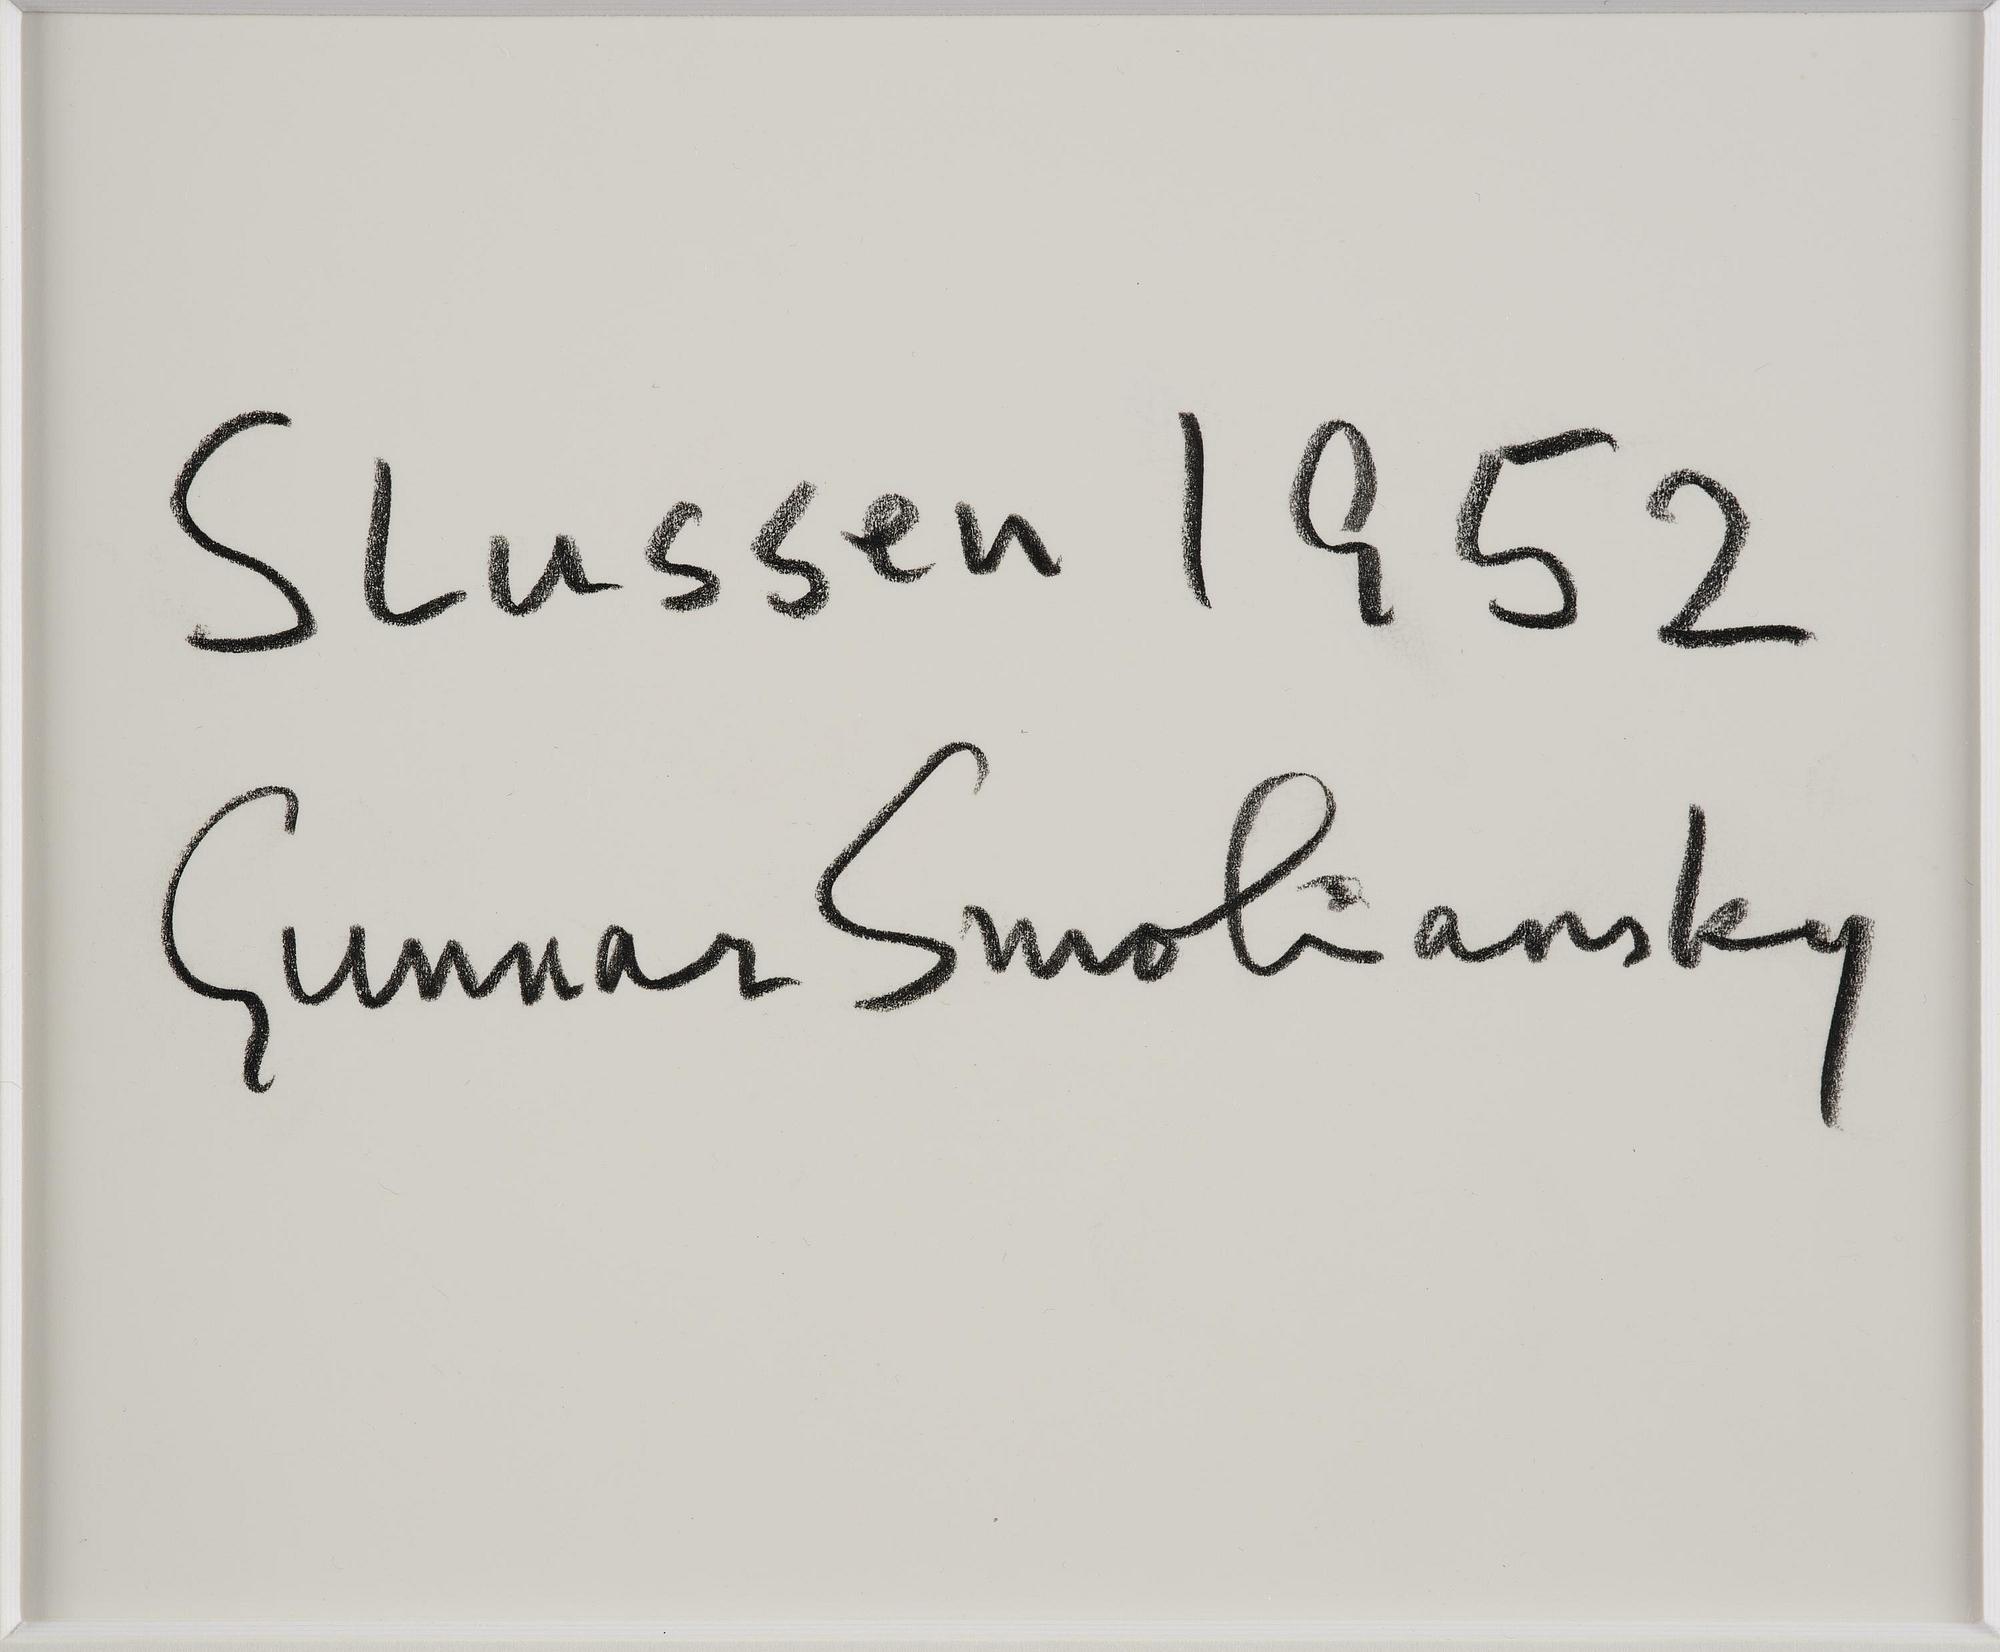 Slussen 1952
Gunnar Smoliansky